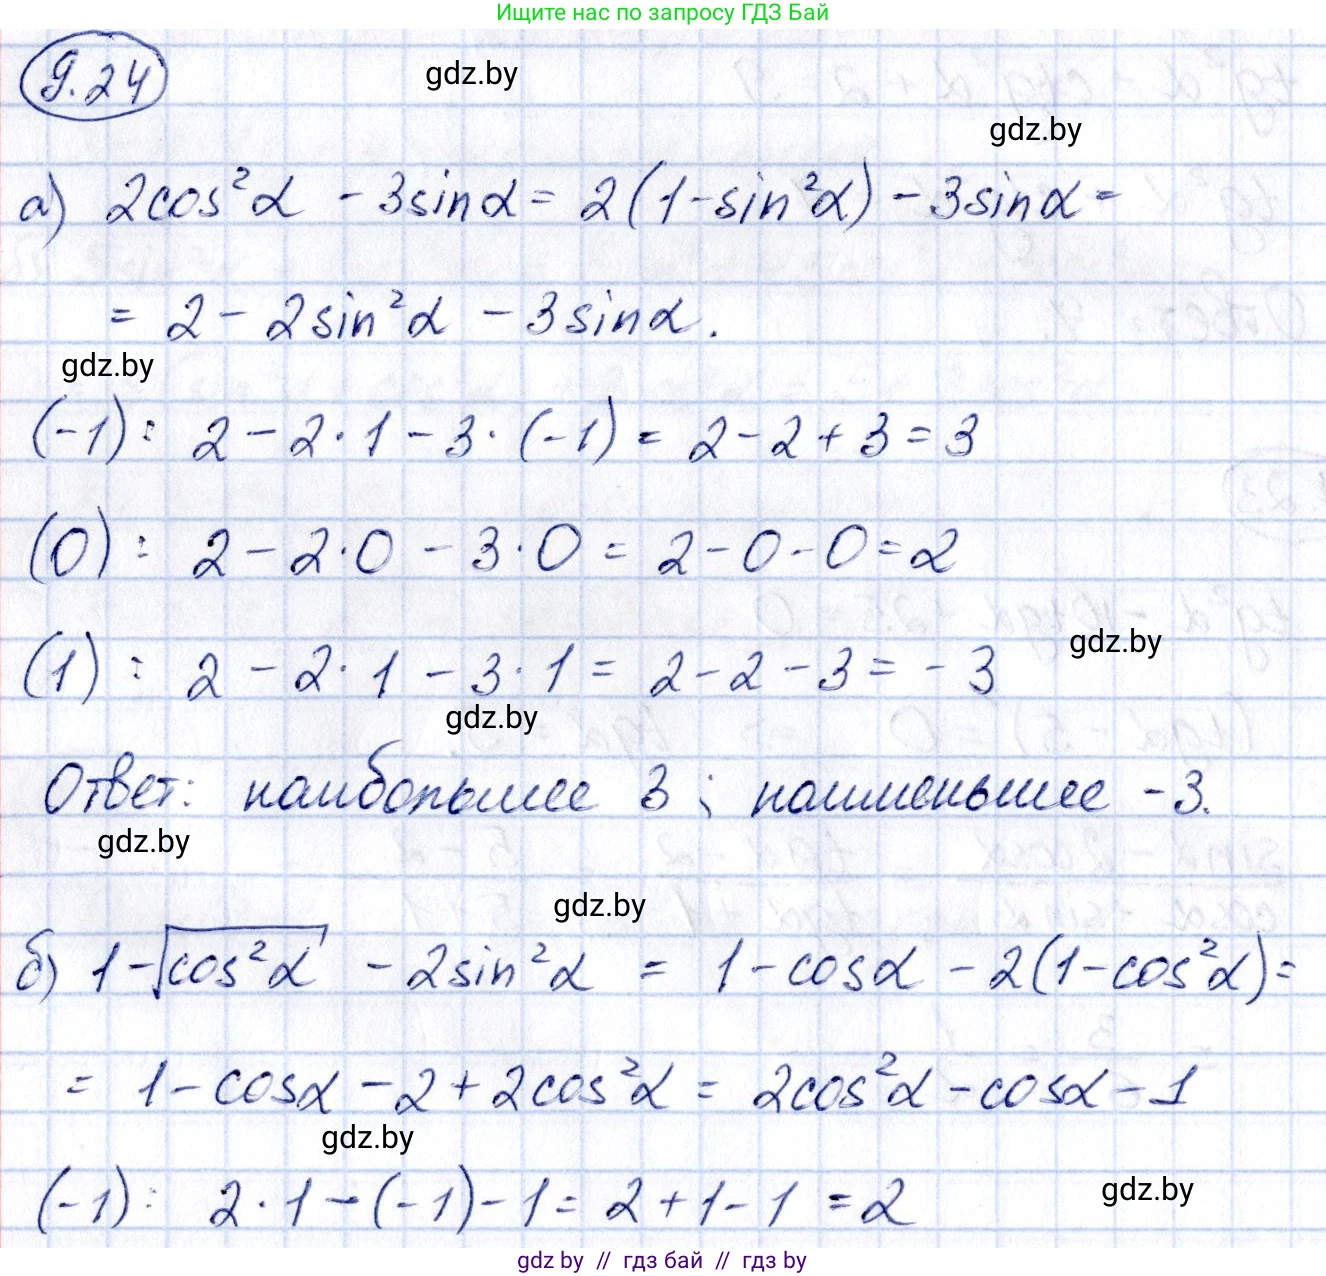 Ищите нас по запросу ГДЗ Бай
9.24
gdz.by
gdz.by
а) 2cos²α - 3sinα = 2(1-sin²α) - 3sinα =
= 2 - 2sin²α - 3sinα.
gdz.by
(-1): 2 - 2·1 - 3·(-1) = 2 - 2 + 3 = 3
(0): 2 - 2·0 - 3·0 = 2 - 0 - 0 = 2
(1): 2 - 2·1 - 3·1 = 2 - 2 - 3 = -3
gdz.by
gdz.by
Ответ: наибольшее 3; наименьшее -3.
gdz.by
gdz.by
б) 1-√cos²α - 2sin²α = 1 - cosα - 2(1-cos²α) =
= 1 - cosα - 2 + 2cos²α = 2cos²α - cosα - 1
gdz.by
(-1): 2·1 - (-1) - 1 = 2 + 1 - 1 = 2
gdz.by
gdz by // гдз бай // гдз by